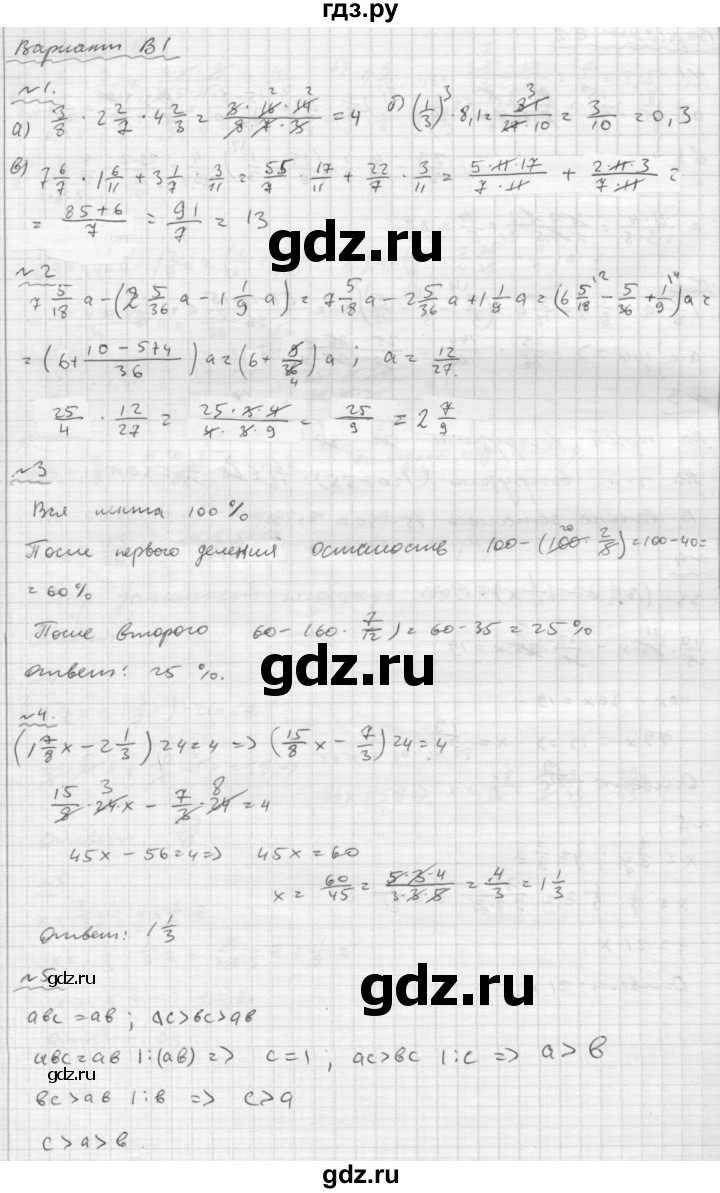 гдз.ру
Вариант В1
№1.
а) 3/8 · 2 2/7 · 4 2/3 = (3 · 16 · 14)/(8 · 7 · 3) = 4   б) (1/3)³ · 8,1 = 81/(27 · 10) = 3/10 = 0,3
в) 7 6/7 · 1 6/11 + 3 1/7 · 3/11 = 55/7 · 17/11 + 22/7 · 3/11 = (5 · 11 · 17)/(7 · 11) + (2 · 11 · 3)/(7 · 11) =
= (85+6)/7 = 91/7 = 13
gdz.ru
№2
7 5/18 a − (2 5/36 a − 1 1/9 a) = 7 5/18 a − 2 5/36 a + 1 1/9 a = (6 5/18 − 5/36 + 1/9) a =
= (6 + (10 − 5 + 4)/36) a = (6 + 9/36) a ; a = 12/27.
25/4 · 12/27 = (25 · 3 · 4)/(4 · 3 · 9) = 25/9 = 2 7/9
№3
Вся 100 %
После первого деления 100 − (100 · 2/8) = 100 − 40 =
= 60 %
После второго 60 − (60 · 7/12) = 60 − 35 = 25 %
gdz.ru
ответ: 25 %.
№4.
(1 7/8 x − 2 1/3) 24 = 4 => (15/8 x − 7/3) 24 = 4
15/8 · 24 · x − 7/3 · 24 = 4
45x − 56 = 4 => 45x = 60
x = 60/45 = (5 · 3 · 4)/(3 · 3 · 5) = 4/3 = 1 1/3
ответ: 1 1/3
№5.
gdz.ru
gdz.ru
abc = ab ; ac > bc > ab
abc = ab | : (ab) => c = 1 ; ac > bc | : c => a > b
bc > ab | : b => c > a
c > a > b
gdz.ru
gdz.ru